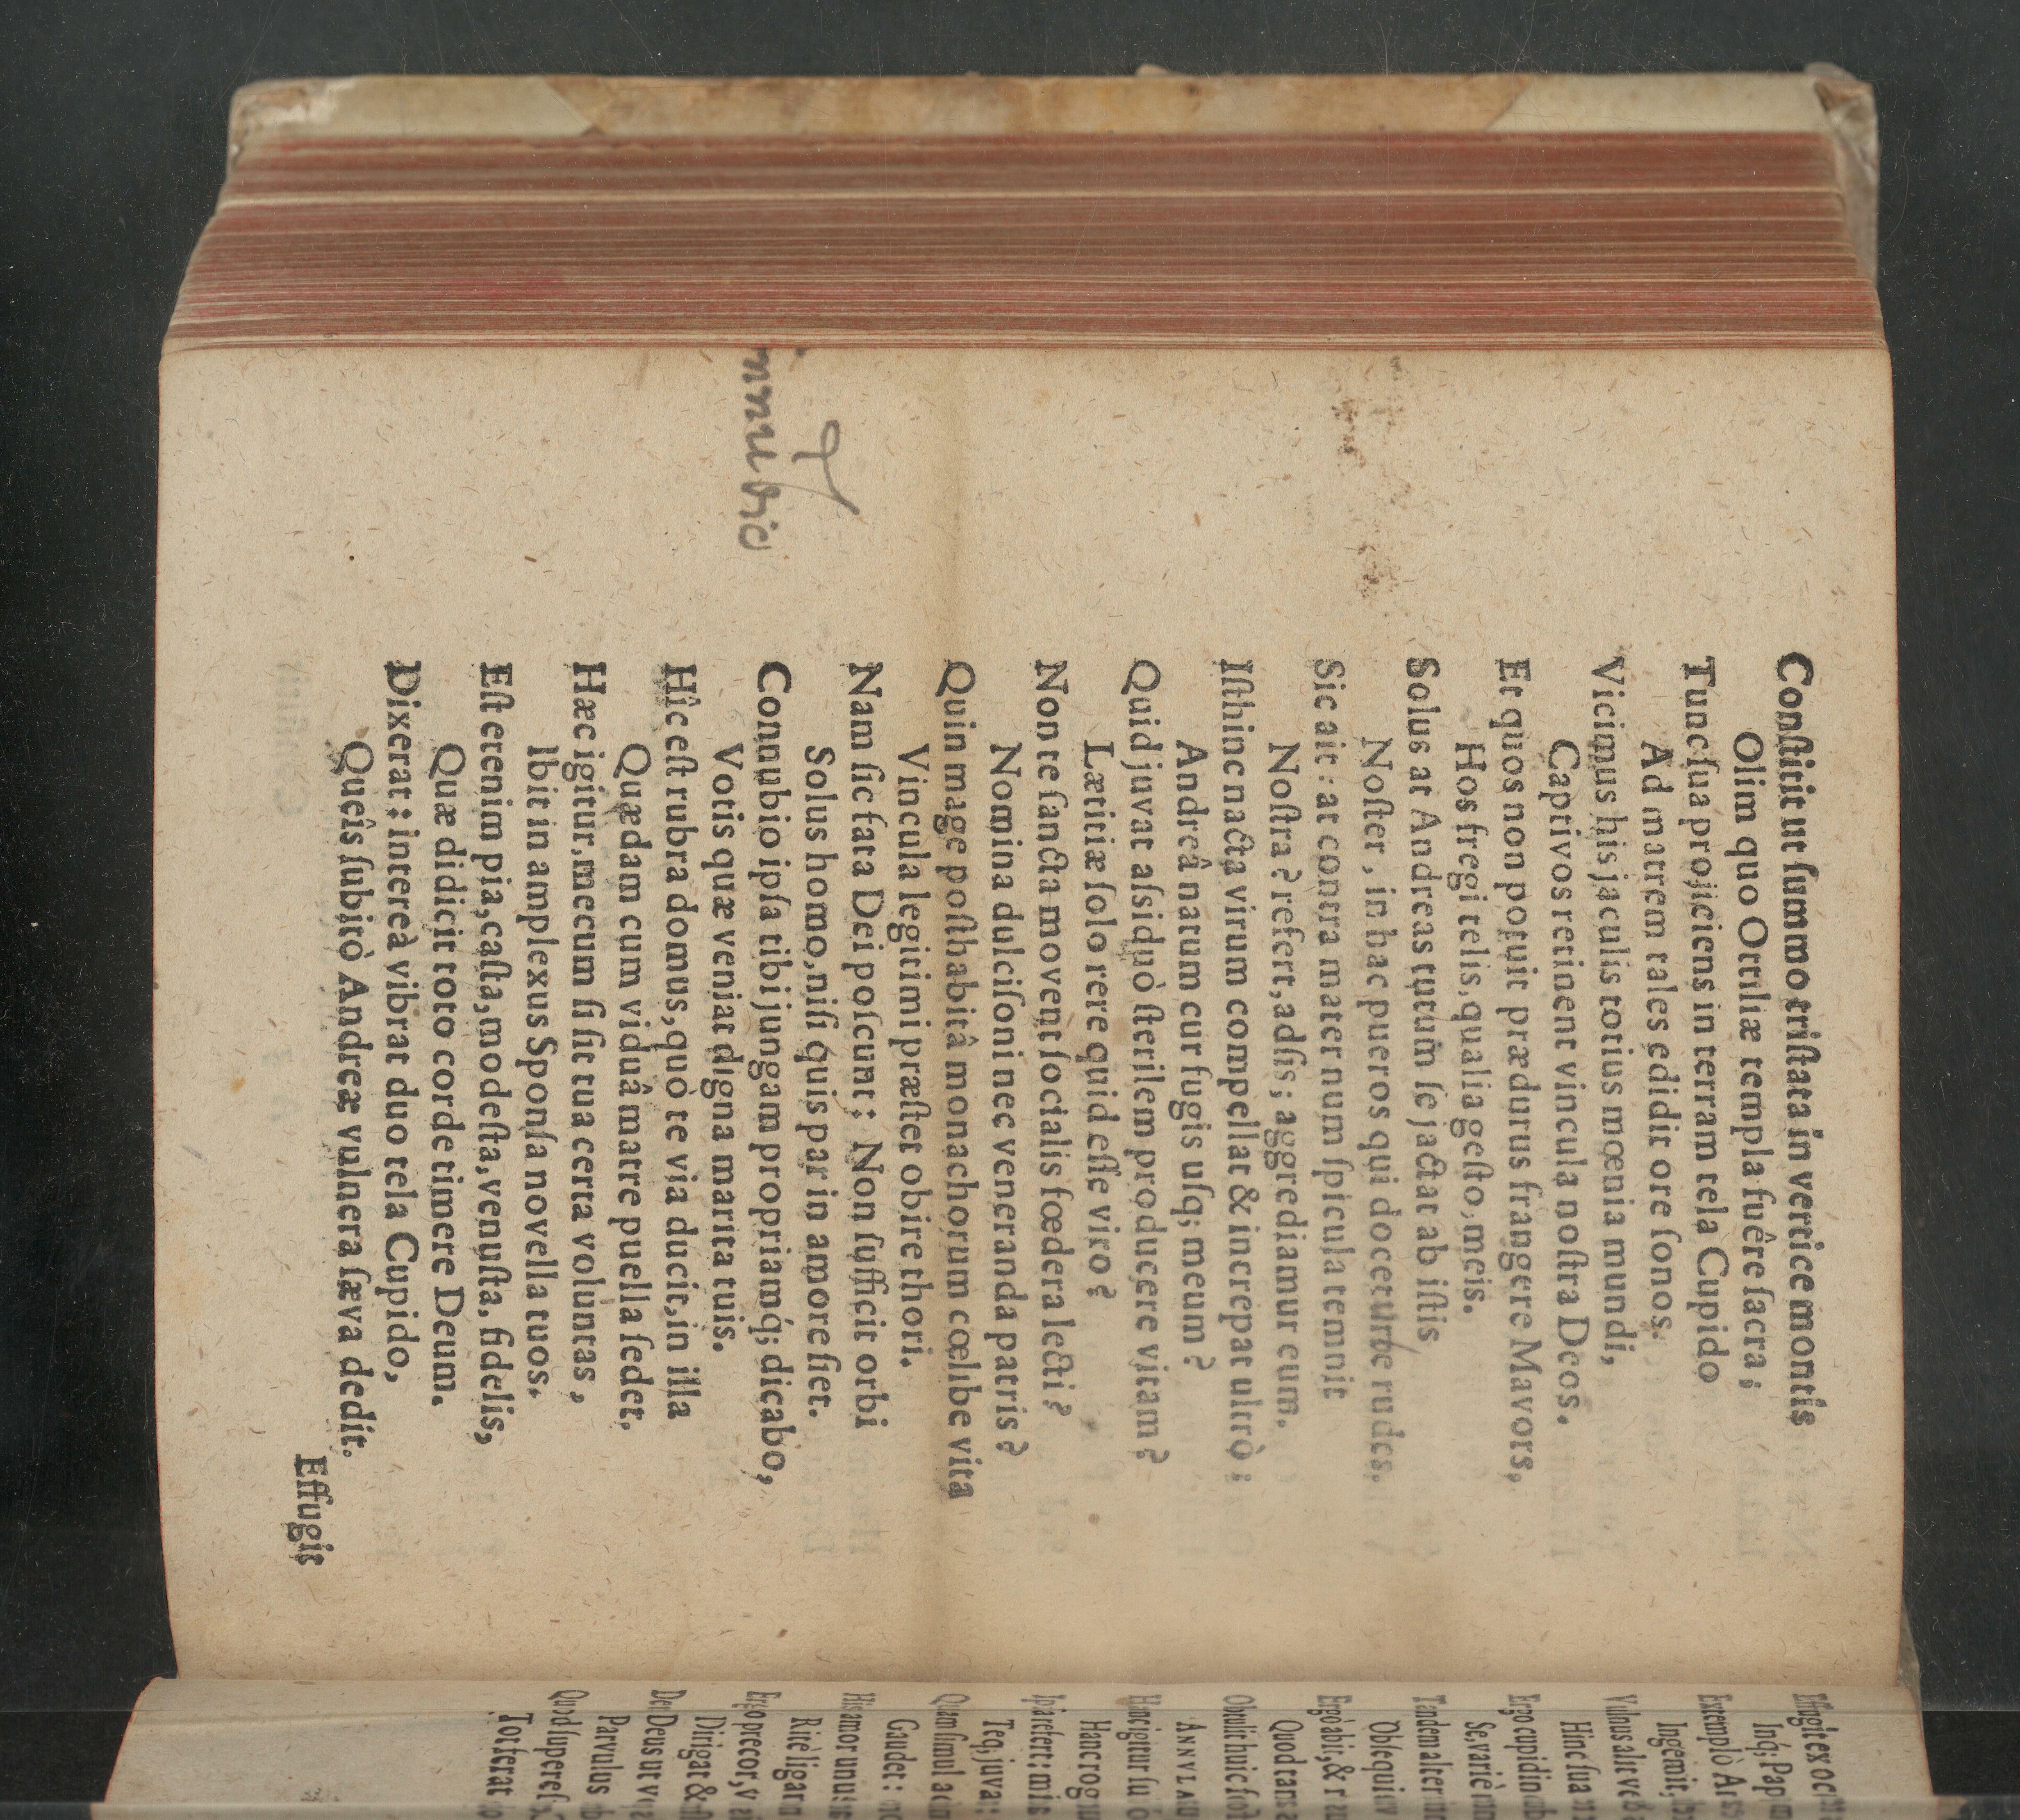 Conſtitit ut ſummo triſtata in vertice montis
Olim quo Ottiliæ templa fuêre ſacra;
Tunc ſua projiciens in terram tela Cupido
Ad matrem tales edidit ore ſonos.
Vicimus his jaculis totius mœnia mundi,
Captivos retinent vincula noſtra Deos.
Et quos non potuit prædurus frangere Mavors,
Hos fregi telis, qualia geſto, meis.
Solus at Andreas tutum ſe jactat ab iſtis
Noſter, in hac pueros qui docet urbe rudes.
Sic ait: at contra mater num ſpicula temnit
Noſtra? refert, adſis; aggrediamur eum.
Iſthinc nacta virum compellat & increpat ultrò;
Andreâ natum cur fugis uſq; meum?
Quid juvat aſsiduò ſterilem producere vitam?
Lætitiæ ſolo rere quid eſſe viro?
Non te ſancta movent ſocialis fœdera lecti?
Nomina dulciſoni nec veneranda patris?
Quin mage poſthabitâ monachorum cœlibe vita
Vincula legitimi præſtet obire thori.
Nam ſic fata Dei poſcunt; Non ſufficit orbi
Solus homo, niſi quis par in amore fiet.
Connubio ipſa tibi jungam propriamq́; dicabo,
Votis quæ veniat digna marita tuis.
Hîc eſt rubra domus, quò te via ducit, in illa
Quædam cum viduâ matre puella ſedet.
Hæc igitur, mecum ſi ſit tua certa voluntas,
Ibit in amplexus Sponſa novella tuos.
Eſt etenim pia, caſta, modeſta, venuſta, fidelis,
Quæ didicit toto corde timere Deum.
Dixerat: intereà vibrat duo tela Cupido,
Queîs ſubitò Andreæ vulnera ſæva dedit.
Effugit
Effugit ex oc
Inq́; Pap
Extemplò A
Ingemit,
Vulnus alit ve
Hinc ſua
Ergo cupidin
Se, variè
Tandem alter
Obſequi
Ergò abit, &
Quod tam
Obtulit huic ſol
ANNULA
Hinc igitur ſu
Hanc rog
Ipſa refert; mi
Teq; juva
Quam ſimul ac
Gaudet:
Hic amor unus
Ritè ligar
Ergo precor,
Dirigat &
Det Deus ut
Parvulus
Quod ſupereſ
Tot ferat